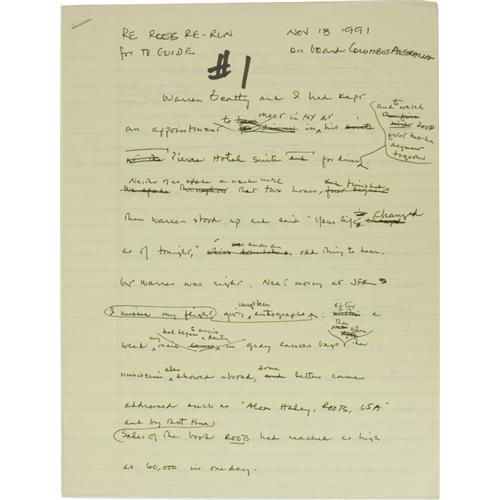 RE ROOTS RE-RUN NOV 18 1991
for TV GUIDE on board COLUMBUS AUSTRALIA
#1
Warren Beatty and I had kept
an appointment to meet in NY at in his
and to watch ROOTS first two-hour segment together
Pierre Hotel suite for dinner,
Neither of us spoke a word until
that two hours,
Then Warren stood up and said "Your life's changed
as of tonight," odd thing to hear,
but Warren was right. Next morning at JFK
I missed my flight giving unspoken autographs; after a
week, my mail had begun to arrive daily in gray canvas bags & the
miniseries also showed abroad, some letters came
addressed such as "Alex Haley, ROOTS, USA"
and by that time
Sales of the book ROOTS had reached as high
as 60,000 in one day.